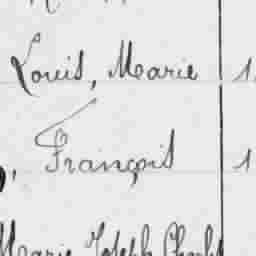 Louis, Marie 1
François 1
Marie Joseph Charles